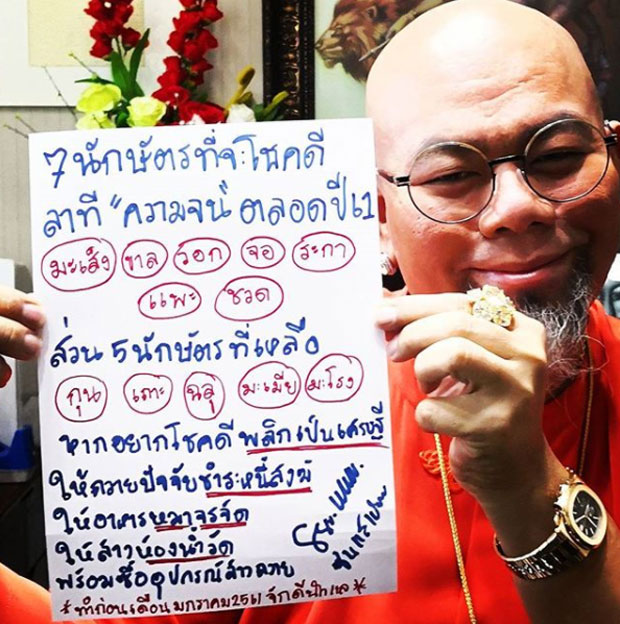 7 นักษัตรที่จะโชคดี
ลาที "ความจน" ตลอดปี 61
มะเส็ง ขาล วอก จอ ระกา
แพะ ชวด
ส่วน 5 นักษัตรที่เหลือ
กุน เถาะ ฉลู มะเมีย มะโรง
หากอยากโชคดี พลิกเป็นเศรษฐี
ให้ถวายปัจจัยชำระหนี้สงฆ์
ให้อาหารหมาจรจัด
ให้ล้างห้องน้ำวัด
พร้อมซื้ออุปกรณ์ล้างถวาย
* ทำก่อนเดือน มกราคม 2561 จักดีนักแล *